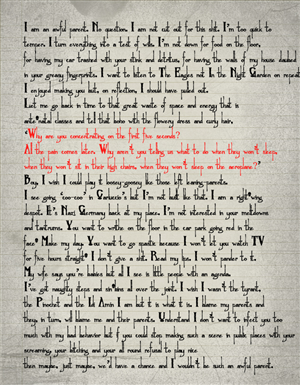 I am an awful parent. No question. I am not cut out for this shit. I'm too quick to
temper. I turn everything into a test of wills. I'm not down for food on the floor,
for having my car trashed with your stink and detritus, for having the walls of my house daubed
in your greasy fingerprints. I want to listen to The Eagles not In the Night Garden on repeat.
I enjoyed making you but, on reflection, I should have pulled out.
Let me go back in time to that great waste of space and energy that is
ante-natal classes and tell that bobo with the flowery dress and curly hair,
'Why are you concentrating on the first five seconds?
All the pain comes later. Why aren't you telling us what to do when they won't sleep,
when they won't sit in their high chairs, when they won't sleep on the aeroplane?'
Boy, I wish I could play it loosey-goosey like those left leaning-parents.
I see going 'coo-coo' in Carluccio's but I'm not built like that. I am a right-wing
despot. It's Nazi Germany back at my place. I'm not interested in your meltdowns
and tantrums. You want to writhe on the floor in the car park going red in the
face? Make my day. You want to go spastic because I won't let you watch TV
for five hours straight? I don't give a shit. Read my lips. I won't pander to it.
My wife says you're babies but all I see is little people with an agenda.
I've got naughty steps and sin bins all over the joint. I wish I wasn't the tyrant,
the Pinochet and the Idi Amin I am but it is what it is. I blame my parents and
they, in turn, will blame me and their parents. Understand I don't want to infect you too
much with my bad behavior but if you could stop making such a scene in public places with your
screaming, your bitching and your all round refusal to play nice
then maybe, just maybe, we'd have a chance and I wouldn't be such an awful parent.